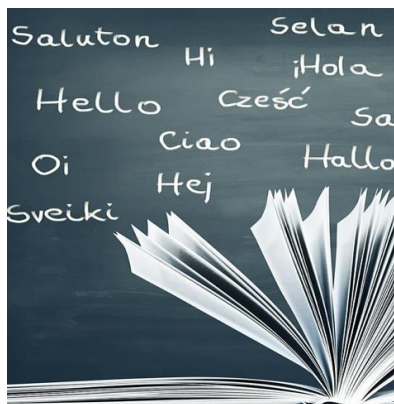 Saluton
Selan
Hi
¡Hola
Hello
Cześć
Ciao
Hallo
Oi
Hej
Sveiki